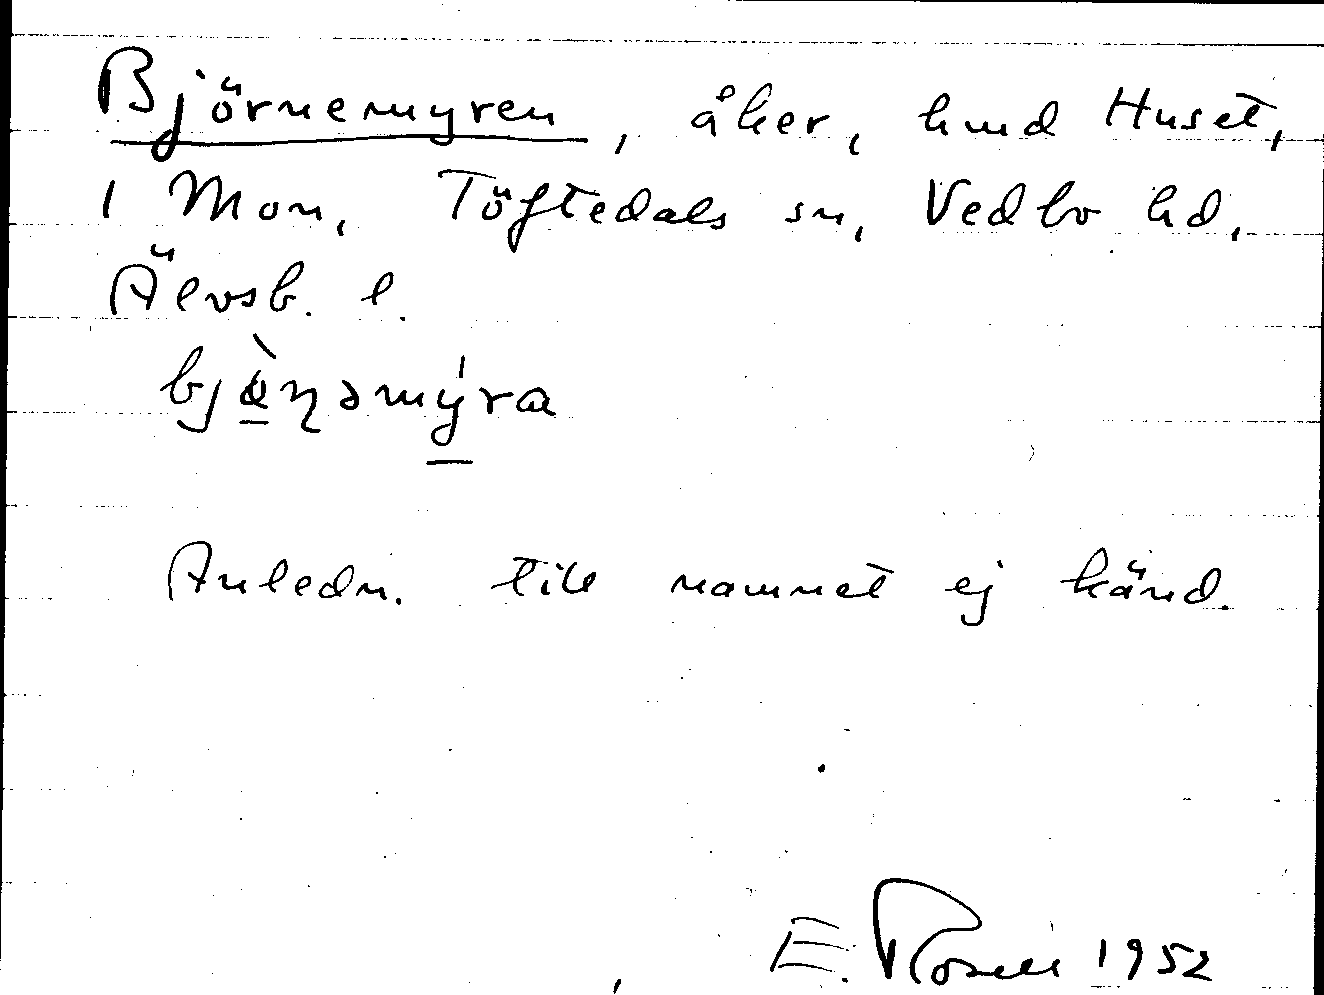 Björnemyren, åker, hmd Huset,
1 Mon, Töftedals sn, Vedbo hd,
Älvsb. l.
bjòṇəmýra
Anledn. till namnet ej känd.
E. Rosén 1952